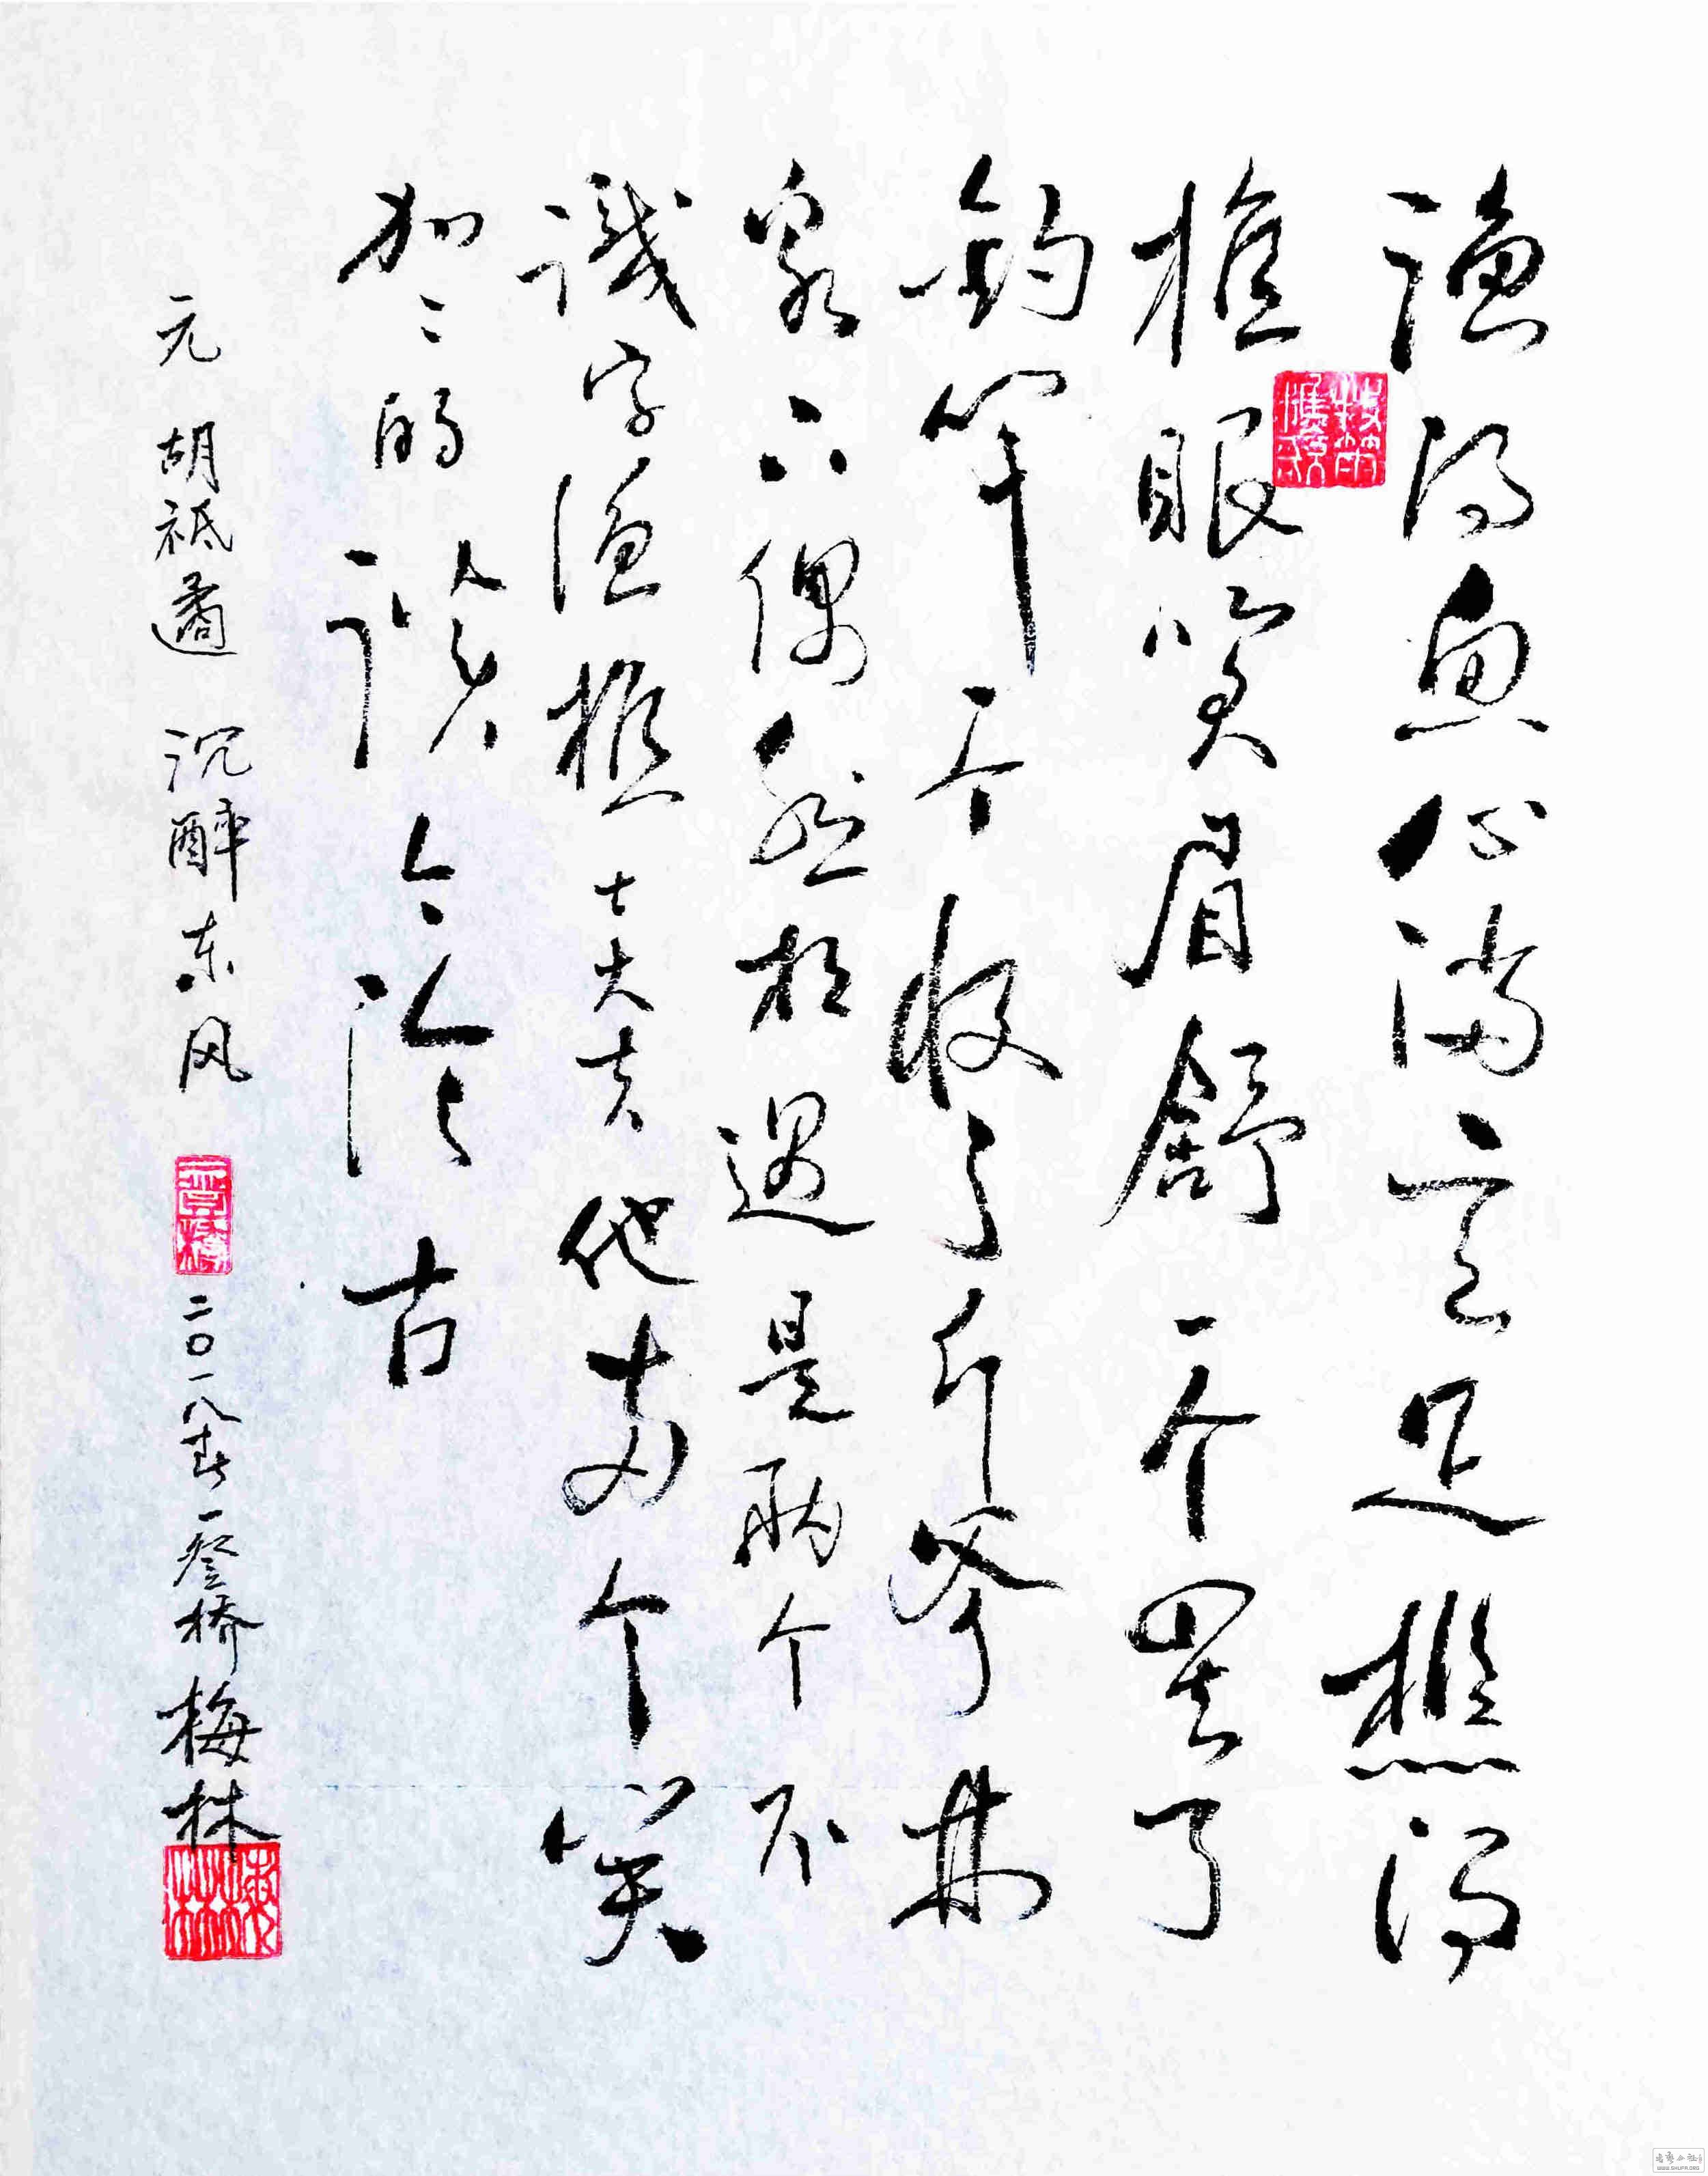 渔得鱼心满意足樵得
樵眼笑眉舒一个罢了
钓竿一个收了斤斧林
泉下偶然相遇是两个不
識字渔樵士大夫他两个笑
加〻的谈今论古
元 胡祗遹 沉醉东风 二〇一八春 桥梅林
WWW.SHUFA.ORG